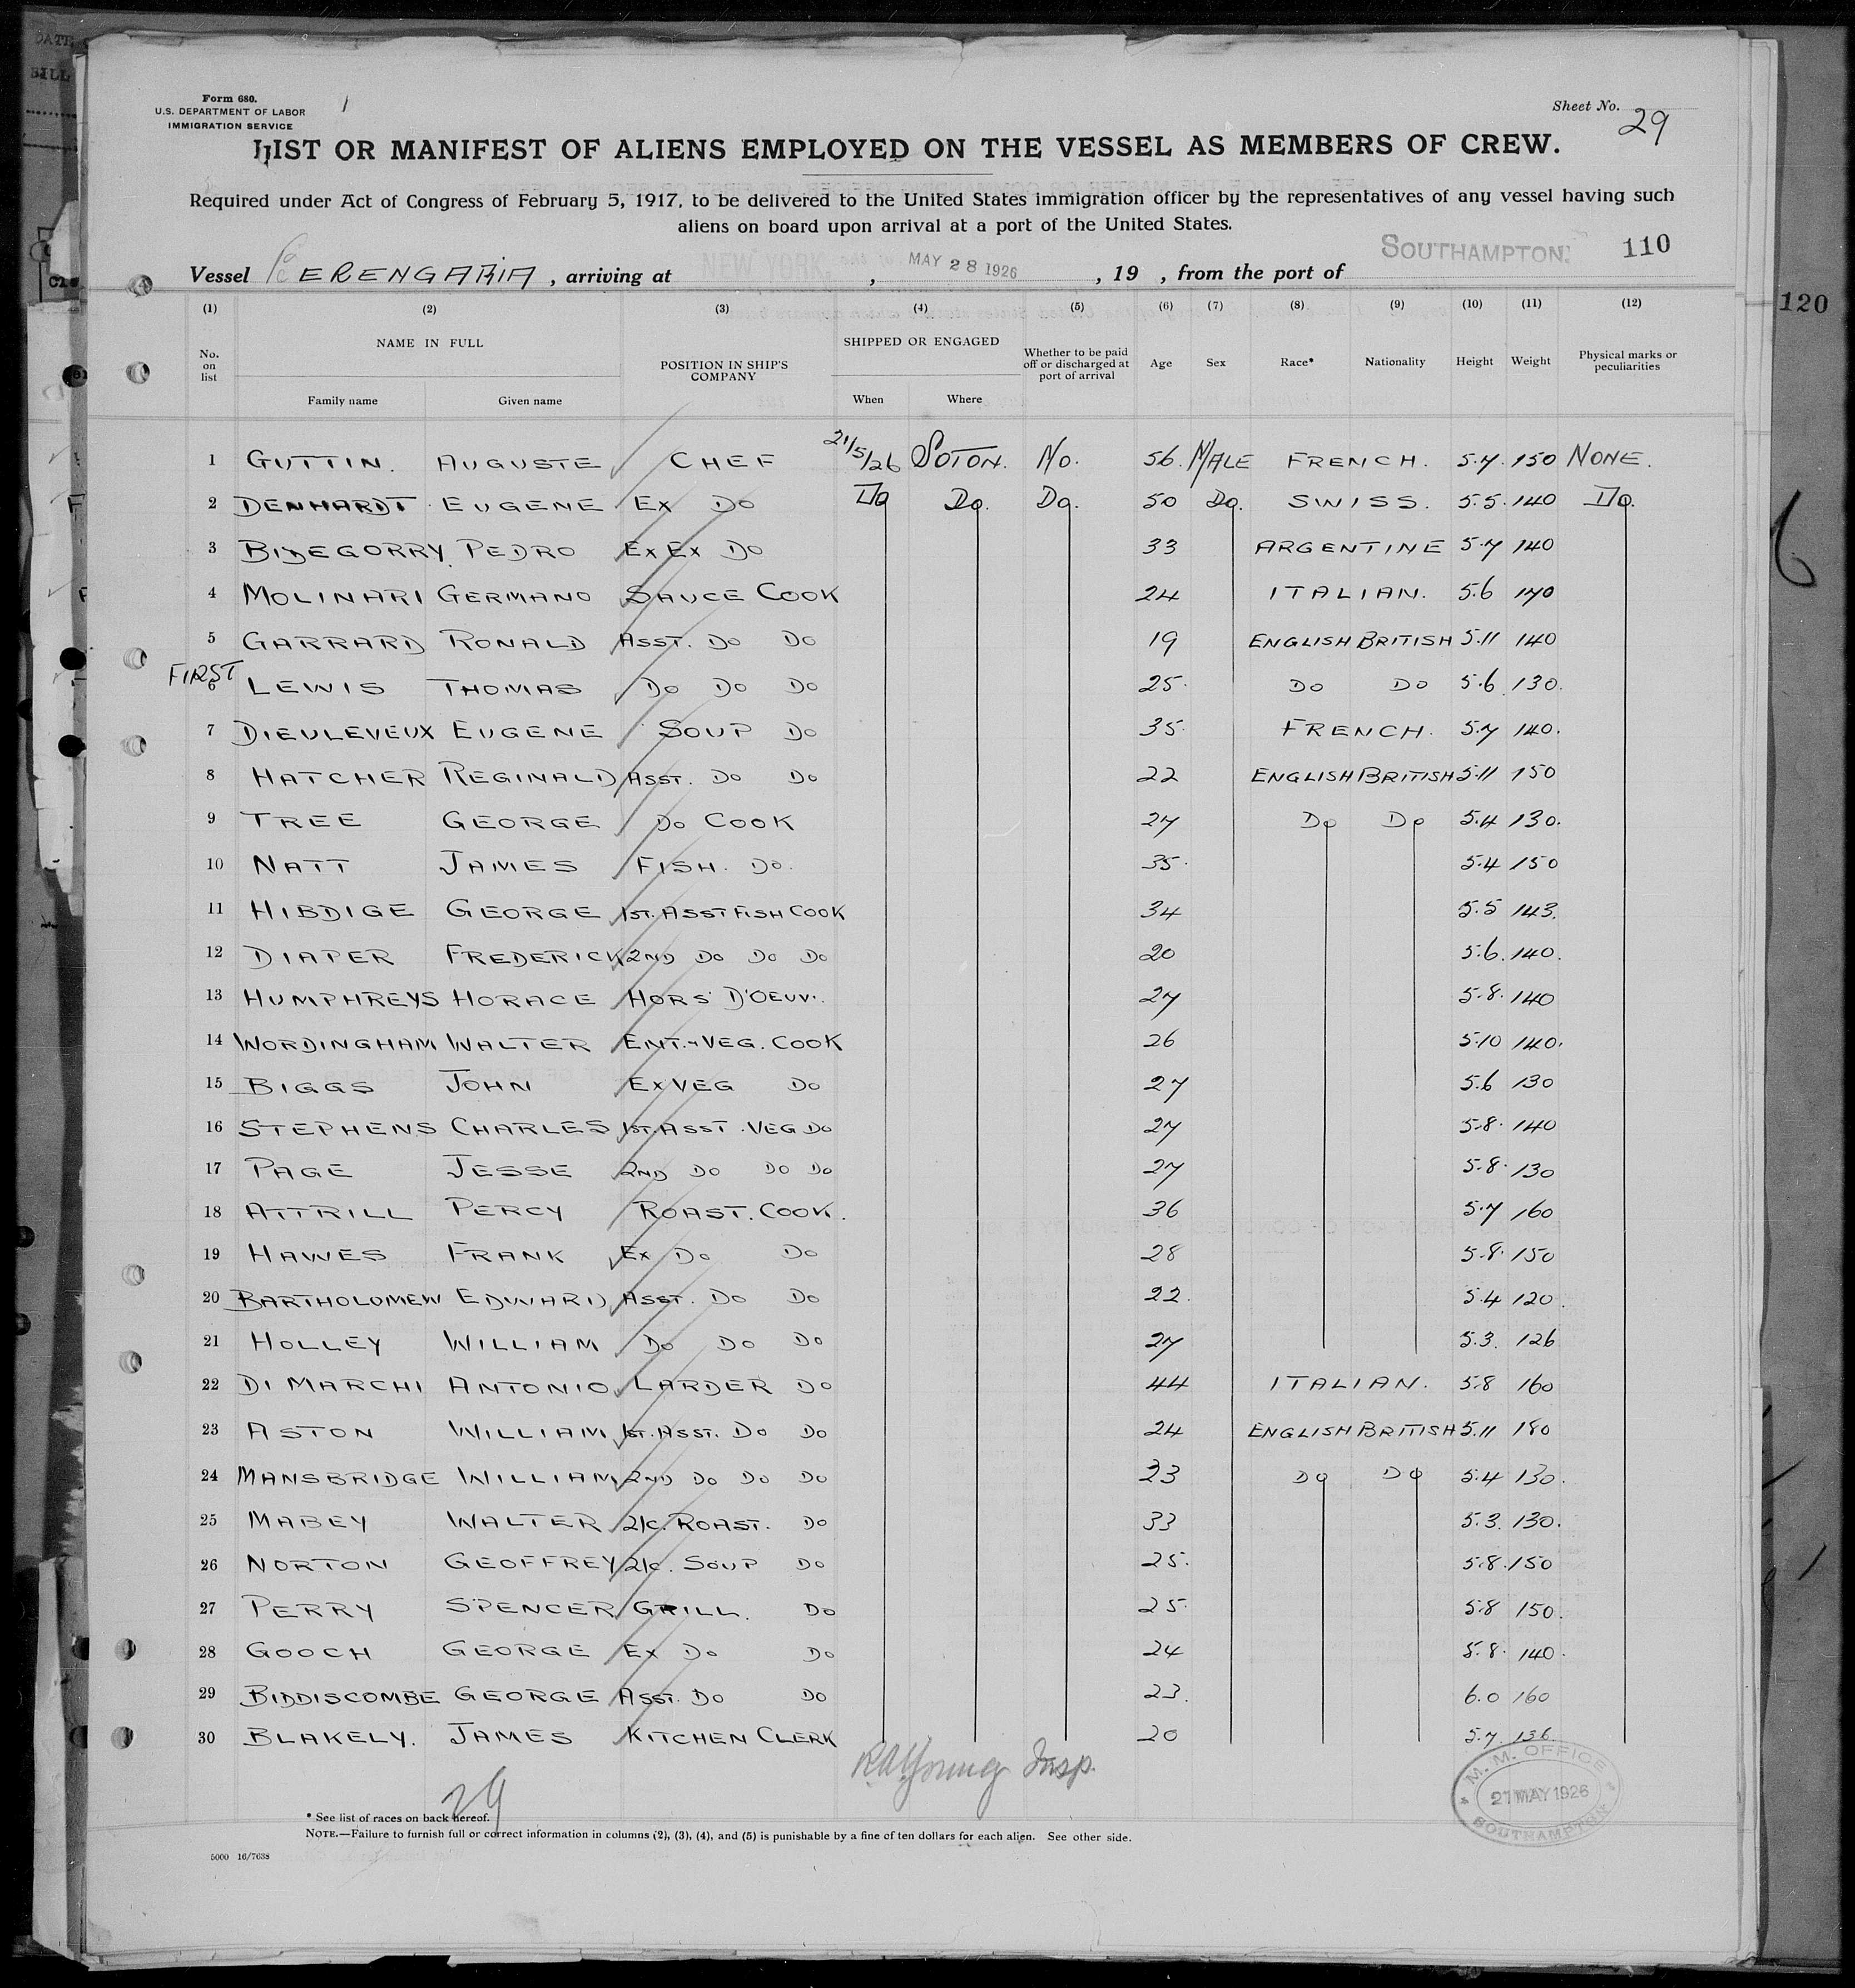 DATE
BILL
Form 680.
U.S. DEPARTMENT OF LABOR
IMMIGRATION SERVICE
1
Sheet No. 29
LIST OR MANIFEST OF ALIENS EMPLOYED ON THE VESSEL AS MEMBERS OF CREW.
Required under Act of Congress of February 5, 1917, to be delivered to the United States immigration officer by the representatives of any vessel having such
aliens on board upon arrival at a port of the United States.
110
Vessel BERENGARIA, arriving at NEW YORK, MAY 28 1926, 19 , from the port of SOUTHAMPTON
120
(1) (2) (3) (4) (5) (6) (7) (8) (9) (10) (11) (12)
No. on list NAME IN FULL Family name Given name POSITION IN SHIP'S COMPANY SHIPPED OR ENGAGED When Where Whether to be paid off or discharged at port of arrival Age Sex Race* Nationality Height Weight Physical marks or peculiarities
1 GUTTIN. AUGUSTE CHEF 21/5/26 SOTON. NO. 56. MALE FRENCH. 5.7. 150 NONE.
2 DENHARDT EUGENE EX DO DO DO. DO. 50 DO. SWISS. 5.5. 140 DO.
3 BIDEGORRY PEDRO EX EX DO 33 ARGENTINE 5.7 140
4 MOLINARI GERMANO SAUCE COOK 24 ITALIAN. 5.6 170
5 GARRARD RONALD ASST. DO DO 19 ENGLISH BRITISH 5.11 140
FIRST
6 LEWIS THOMAS DO DO DO 25. DO DO 5.6 130.
7 DIEULEVEUX EUGENE SOUP DO 35. FRENCH. 5.7 140.
8 HATCHER REGINALD ASST. DO DO 22 ENGLISH BRITISH 5.11 150
9 TREE GEORGE DO COOK 27 DO DO 5.4 130.
10 NATT JAMES FISH. DO. 35. 5.4 150
11 HIBDIGE GEORGE 1ST. ASST FISH COOK 34 5.5 143.
12 DIAPER FREDERICK 2ND DO DO DO 20 5.6. 140.
13 HUMPHREYS HORACE HORS D'OEUV. 27 5.8. 140
14 WORDINGHAM WALTER ENT. & VEG. COOK 26 5.10 140.
15 BIGGS JOHN EX VEG DO 27 5.6 130
16 STEPHENS CHARLES 1ST. ASST. VEG DO 27 5.8. 140
17 PAGE JESSE 2ND DO DO DO 27 5.8. 130
18 ATTRILL PERCY ROAST. COOK. 36 5.7 160
19 HAWES FRANK EX DO DO 28 5.8. 150
20 BARTHOLOMEW EDWARD ASST. DO DO 22. 5.4 120.
21 HOLLEY WILLIAM DO DO DO 27 5.3. 126
22 DI MARCHI ANTONIO LARDER DO 44 ITALIAN. 5.8 160
23 ASTON WILLIAM 1ST. ASST. DO DO 24 ENGLISH BRITISH 5.11 180
24 MANSBRIDGE WILLIAM 2ND DO DO DO 23 DO DO 5.4 130.
25 MABEY WALTER 2/C. ROAST. DO 33 5.3. 130.
26 NORTON GEOFFREY 2/C. SOUP DO 25. 5.8. 150
27 PERRY SPENCER GRILL. DO 25. 5.8 150.
28 GOOCH GEORGE EX DO DO 24 5.8. 140.
29 BIDDISCOMBE GEORGE ASST. DO DO 23. 6.0 160
30 BLAKELY. JAMES KITCHEN CLERK 20 5.7. 136.
Young Insp.
M. M. OFFICE
21 MAY 1926
SOUTHAMPTON
29
* See list of races on back hereof.
NOTE.—Failure to furnish full or correct information in columns (2), (3), (4), and (5) is punishable by a fine of ten dollars for each alien. See other side.
5000 16/7638